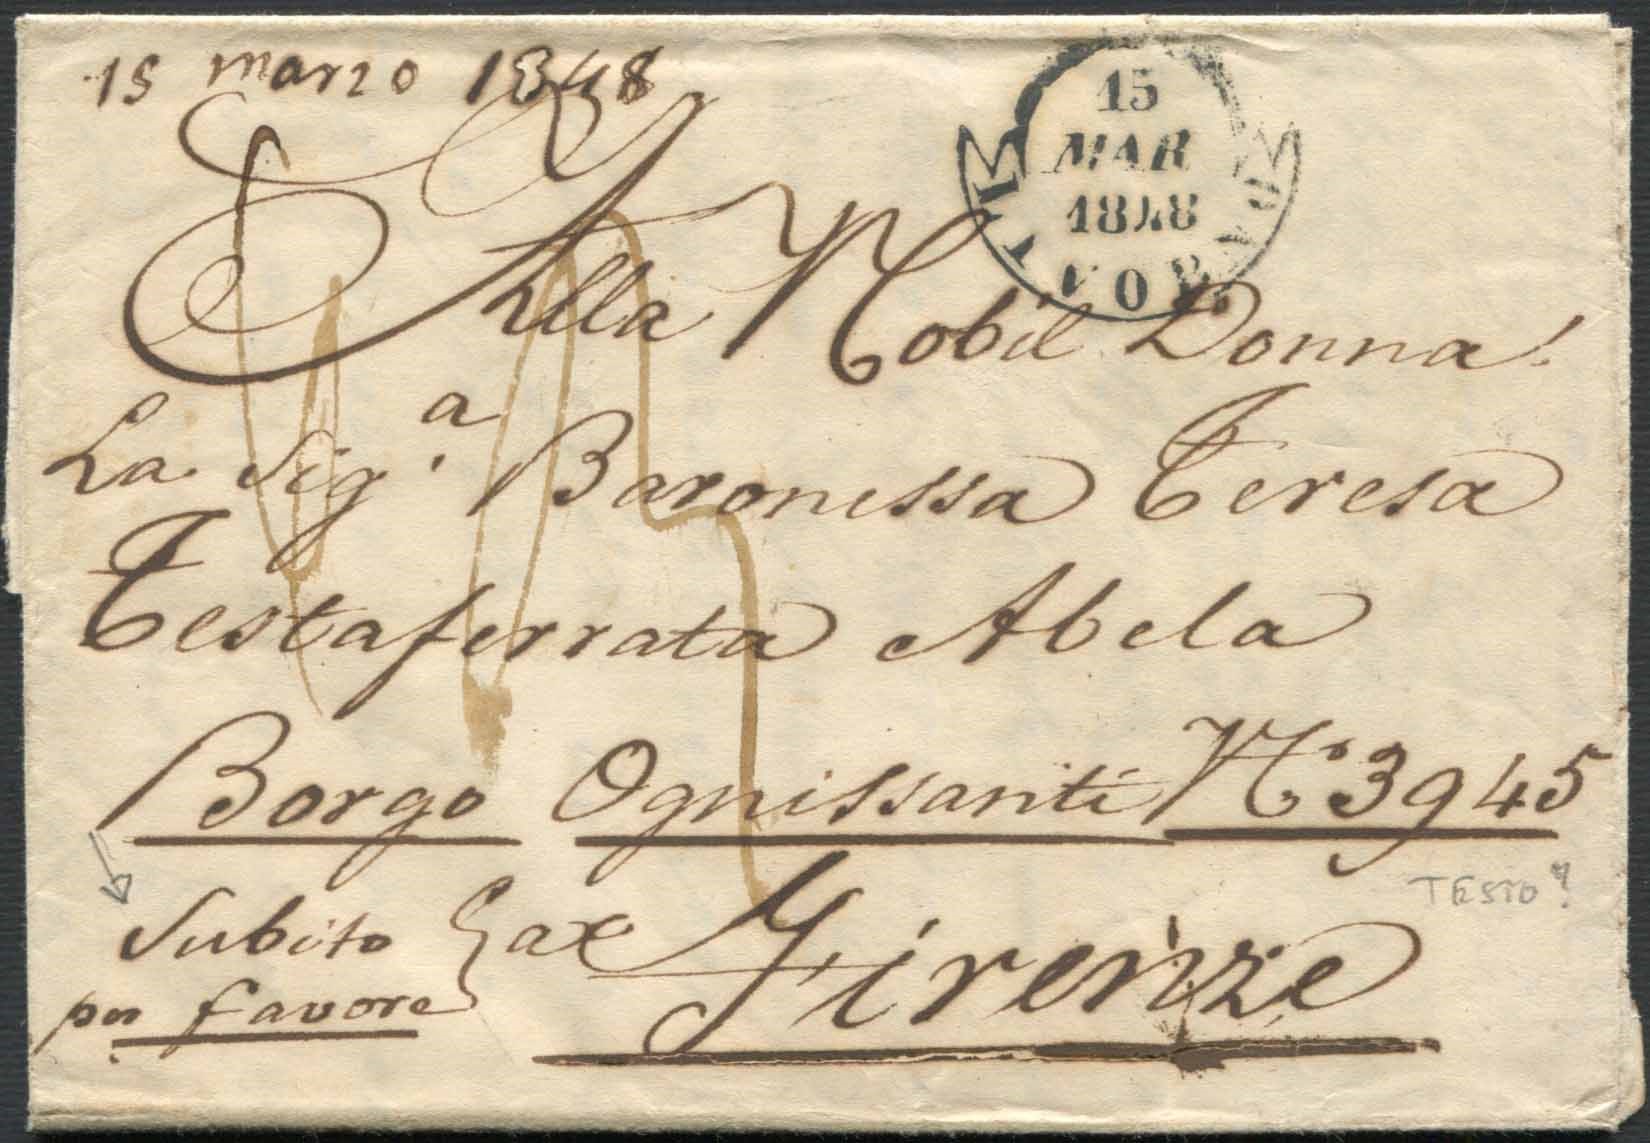 15 marzo 1848
15
MAR
1848
LIVORNO
Alla Nobil Donna
La Sig.a Baronessa Teresa
Testaferrata Abela
Borgo Ognissanti No 3945
Subito
per favore
Firenze
TESTO